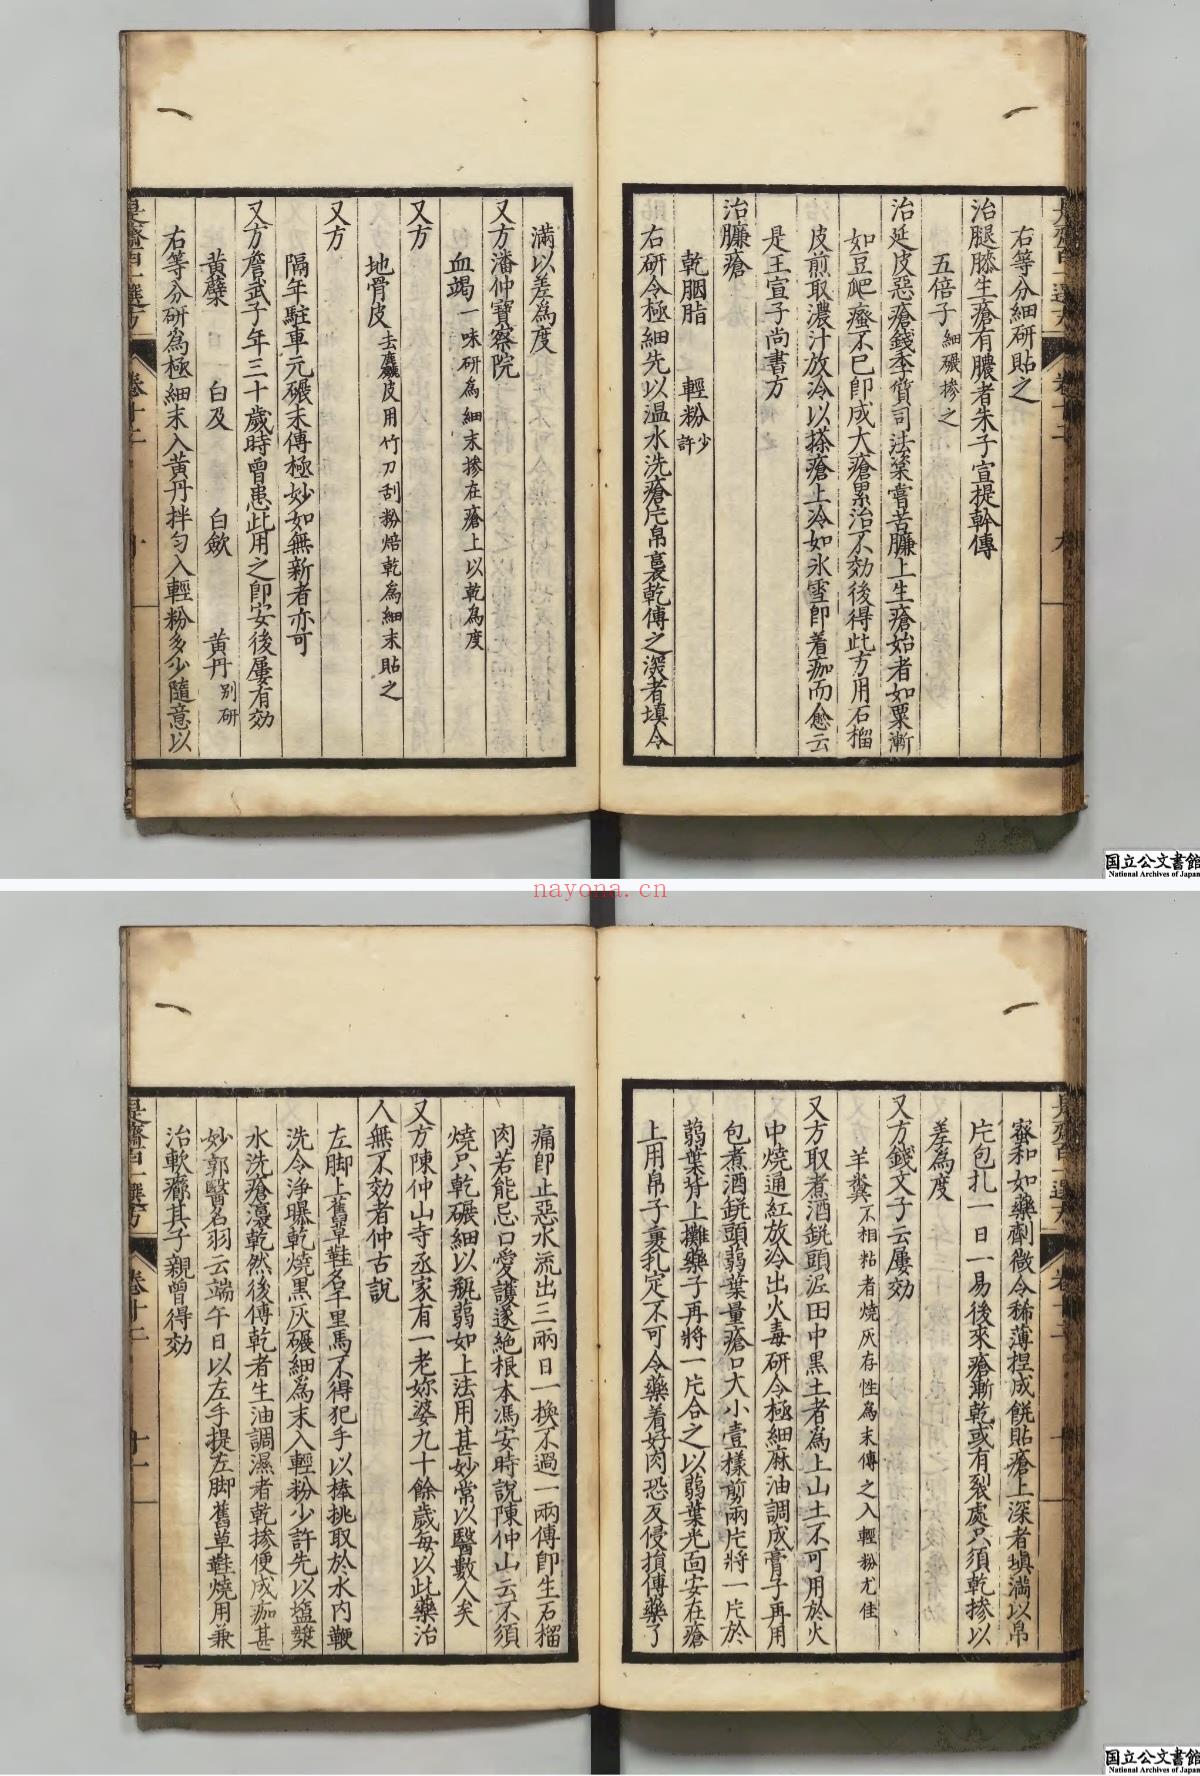 右等分細研貼之
治腿膝生瘡有膿者朱子宣提幹傳
五倍子細碾摻之
治延皮惡瘡錢季質司法䇿嘗苦臁上生瘡始者如粟漸
如豆爬癢不已卽成大瘡累治不効後得此方用石榴
皮煎取濃汁放冷以搽瘡上冷如氷雪卽着痂而愈云
是王宣子尚書方
治臁瘡
乾胭脂 輕粉少許
右研令極細先以温水洗瘡片帛裹乾傅之深者填令
是齋百一選方 卷十二 九
滿以差為度
又方潘仲寶察院
血竭一味研為細末摻在瘡上以乾為度
又方
地骨皮去麤皮用竹刀刮粉焙乾為細末貼之
又方
隔年駐車元碾末傅極妙如無新者亦可
又方詹武子年三十歲時曾患此用之卽安後屢有効
黃蘗 白及 白斂 黃丹別研
右等分研為極細末入黃丹拌勻入輕粉多少隨意以
是齋百一選方 卷十二 十
国立公文書館
National Archives of Japan
nayona.cn
蜜和如藥劑微令稀薄捏成餅貼瘡上深者塡滿以帛
片包扎一日一易後來瘡漸乾或有裂處只須乾摻以
差為度
又方錢文子云屢効
羊糞不相粘者燒灰存性為末傅之入輕粉尤佳
又方取煮酒鋴頭泥田中黑土者為上山土不可用於火
中燒通紅放冷出火毒研令極細麻油調成膏子再用
包煮酒鋴頭蒻葉量瘡口大小壹樣剪兩片將一片於
蒻葉背上攤藥子再將一片合之以蒻葉光面安在瘡
上用帛子裹扎定不可令藥着好肉恐反侵損傅藥了
痛卽止惡水流出三兩日一換不過一兩傅卽生石榴
肉若能忌口愛護遂絕根本馮安時說陳仲山云不須
燒只乾碾細以瓶蒻如上法用甚妙常以醫數人矣
又方陳仲山寺丞家有一老妳婆九十餘歲每以此藥治
人無不効者仲古說
左脚上舊草鞋名千里馬不得犯手以棒挑取於水內鞭
洗令浄曝乾燒黑灰碾細為末入輕粉少許先以塩漿
水洗瘡浥乾然後傅乾者生油調濕者乾摻便成痂甚
妙郭醫名羽云端午日以左手提左脚舊草鞋燒用兼
治軟癤其子親曾得効
是齋百一選方 卷十二 十一
国立公文書館
National Archives of Japan